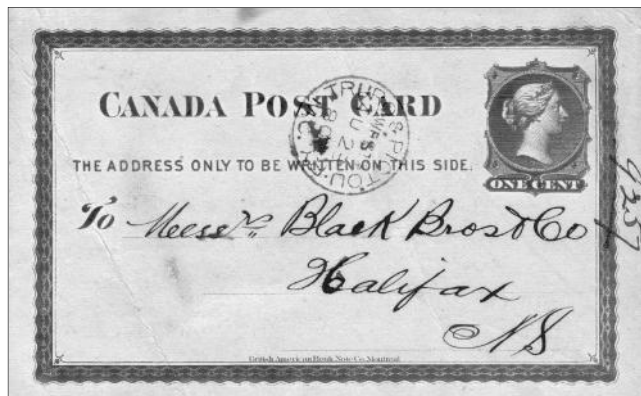 CANADA POST CARD
TRURO & PICTOU
THE ADDRESS ONLY TO BE WRITTEN ON THIS SIDE.
ONE CENT
To Messrs Black Bros & Co
Halifax
NS
4257
British American Bank Note Co. Montreal